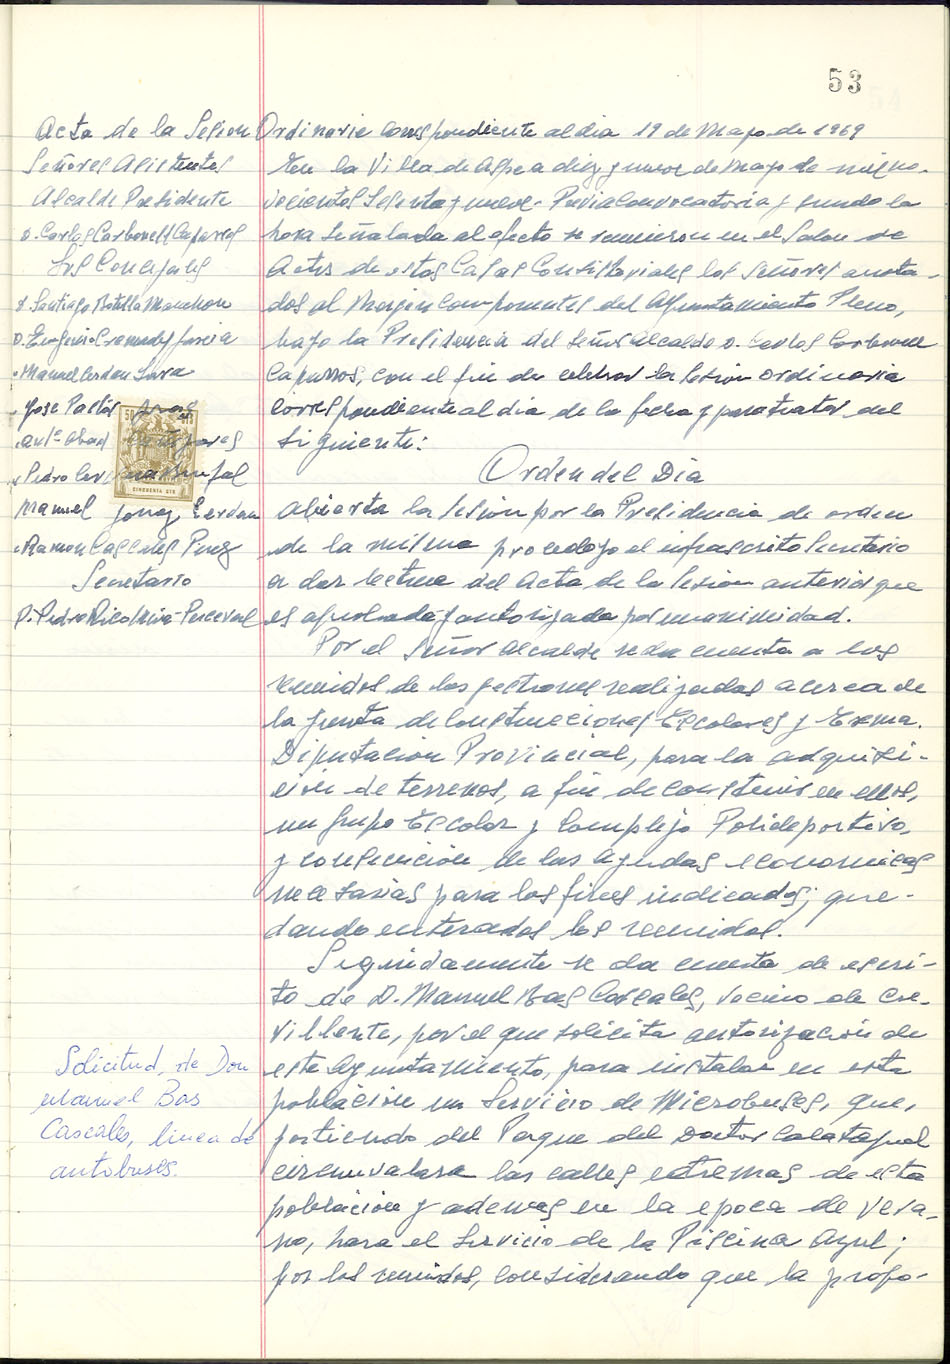 53
Acta de la Sesion Ordinaria correspondiente al dia 19 de Mayo de 1969
Señores Asistentes
Alcalde Presidente
D. Carlos Carbonell Caparros
Sres Concejales
D. Santiago Botella Manchon
D. Eugenio Cremades Garcia
Manuel Cerdan
Jose Pastor
Antº Abad
Pedro
Manuel Gomez Cerdan
Ramon Cascales Perez
Secretario
D. Pedro Rico Perceval
50 CTS
CINCUENTA CTS
En la Villa de Aspe a diez y nueve de Mayo de mil no-
vecientos sesenta y nueve. Previa convocatoria y siendo la
hora señalada al efecto se reunieron en el Salon de
Actos de estas Casas Consistoriales los Señores anota-
dos al margen componentes del Ayuntamiento Pleno,
bajo la Presidencia del Señor Alcalde D. Carlos Carbonell
Caparros, con el fin de celebrar la sesion ordinaria
correspondiente al dia de la fecha y para tratar del
siguiente:
Orden del Dia
Abierta la sesion por la Presidencia de orden
de la misma procedo yo el infrascrito Secretario
a dar lectura del Acta de la sesion anterior que
es aprobada y autorizada por unanimidad.
Por el Señor Alcalde se da cuenta a los
reunidos de las gestiones realizadas acerca de
la Junta de Construcciones Escolares y Exema.
Diputacion Provincial, para la adquisi-
cion de terrenos, a fin de construir en ellos,
un Grupo Escolar y Complejo Polideportivo,
y consecucion de las ayudas economicas
necesarias para los fines indicados; que-
dando enterados los reunidos.
Seguidamente se da cuenta de escri-
to de D. Manuel Bas Cascales, vecino de Cre-
villente, por el que solicita autorizacion de
este Ayuntamiento, para instalar en esta
poblacion un Servicio de Microbuses, que,
partiendo del Parque del Doctor Calatayud
circunvalara las calles extremas de esta
poblacion y ademas en la epoca de vera-
no, hara el servicio de la Piscina Azul;
por los reunidos, considerando que la propo-
Solicitud, de Don
Manuel Bas
Cascales, linea de
autobuses.